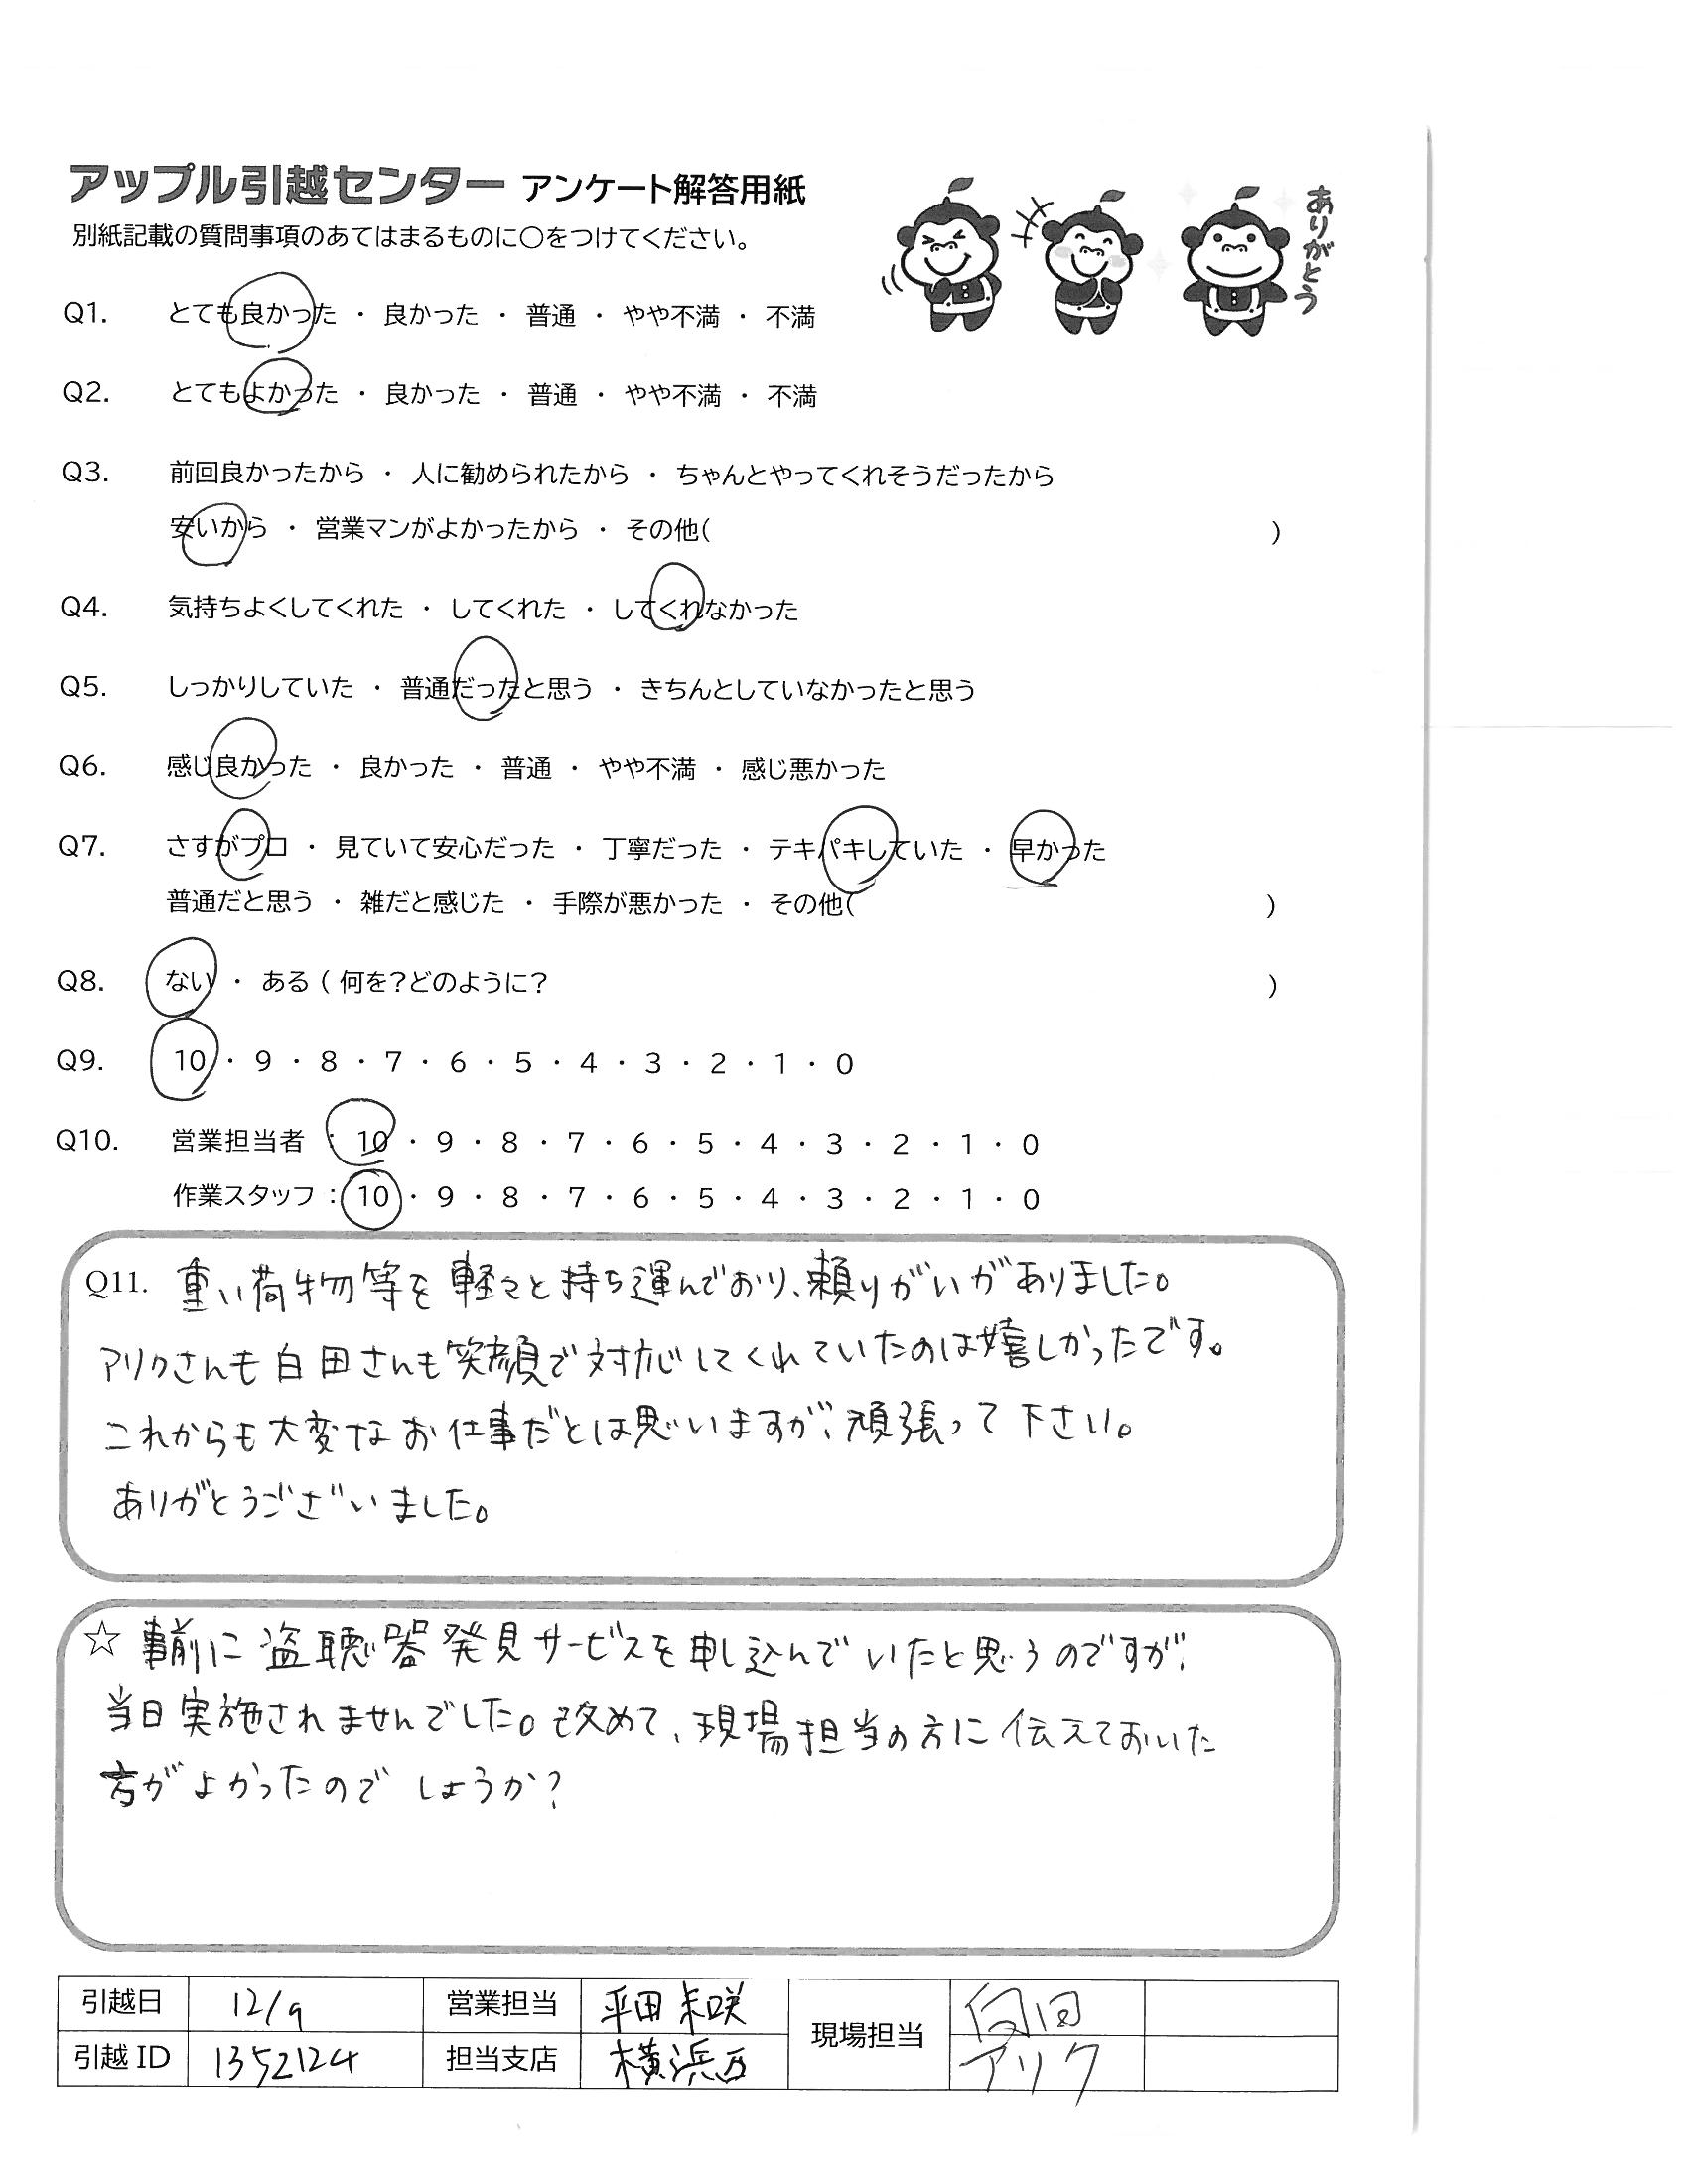 アップル引越センター アンケート解答用紙
別紙記載の質問事項のあてはまるものに○をつけてください。
ありがとう
Q1. とても良かった ・ 良かった ・ 普通 ・ やや不満 ・ 不満
Q2. とてもよかった ・ 良かった ・ 普通 ・ やや不満 ・ 不満
Q3. 前回良かったから ・ 人に勧められたから ・ ちゃんとやってくれそうだったから
安いから ・ 営業マンがよかったから ・ その他( )
Q4. 気持ちよくしてくれた ・ してくれた ・ してくれなかった
Q5. しっかりしていた ・ 普通だったと思う ・ きちんとしていなかったと思う
Q6. 感じ良かった ・ 良かった ・ 普通 ・ やや不満 ・ 感じ悪かった
Q7. さすがプロ ・ 見ていて安心だった ・ 丁寧だった ・ テキパキしていた ・ 早かった
普通だと思う ・ 雑だと感じた ・ 手際が悪かった ・ その他( )
Q8. ない ・ ある ( 何を?どのように? )
Q9. 10 ・ 9 ・ 8 ・ 7 ・ 6 ・ 5 ・ 4 ・ 3 ・ 2 ・ 1 ・ 0
Q10. 営業担当者 : 10 ・ 9 ・ 8 ・ 7 ・ 6 ・ 5 ・ 4 ・ 3 ・ 2 ・ 1 ・ 0
作業スタッフ : 10 ・ 9 ・ 8 ・ 7 ・ 6 ・ 5 ・ 4 ・ 3 ・ 2 ・ 1 ・ 0
Q11. 重い荷物等を軽々と持ち運んでおり、頼りがいがありました。
アリクさんも白田さんも笑顔で対応してくれていたのは嬉しかったです。
これからも大変なお仕事だとは思いますが、頑張って下さい。
ありがとうございました。
☆ 事前に盗聴器発見サービスを申し込んでいたと思うのですが、
当日実施されませんでした。改めて、現場担当の方に伝えておいた
方がよかったのでしょうか?
引越日 12/9 営業担当 平田 未咲 現場担当
引越 ID 1352124 担当支店 横浜西 アリク